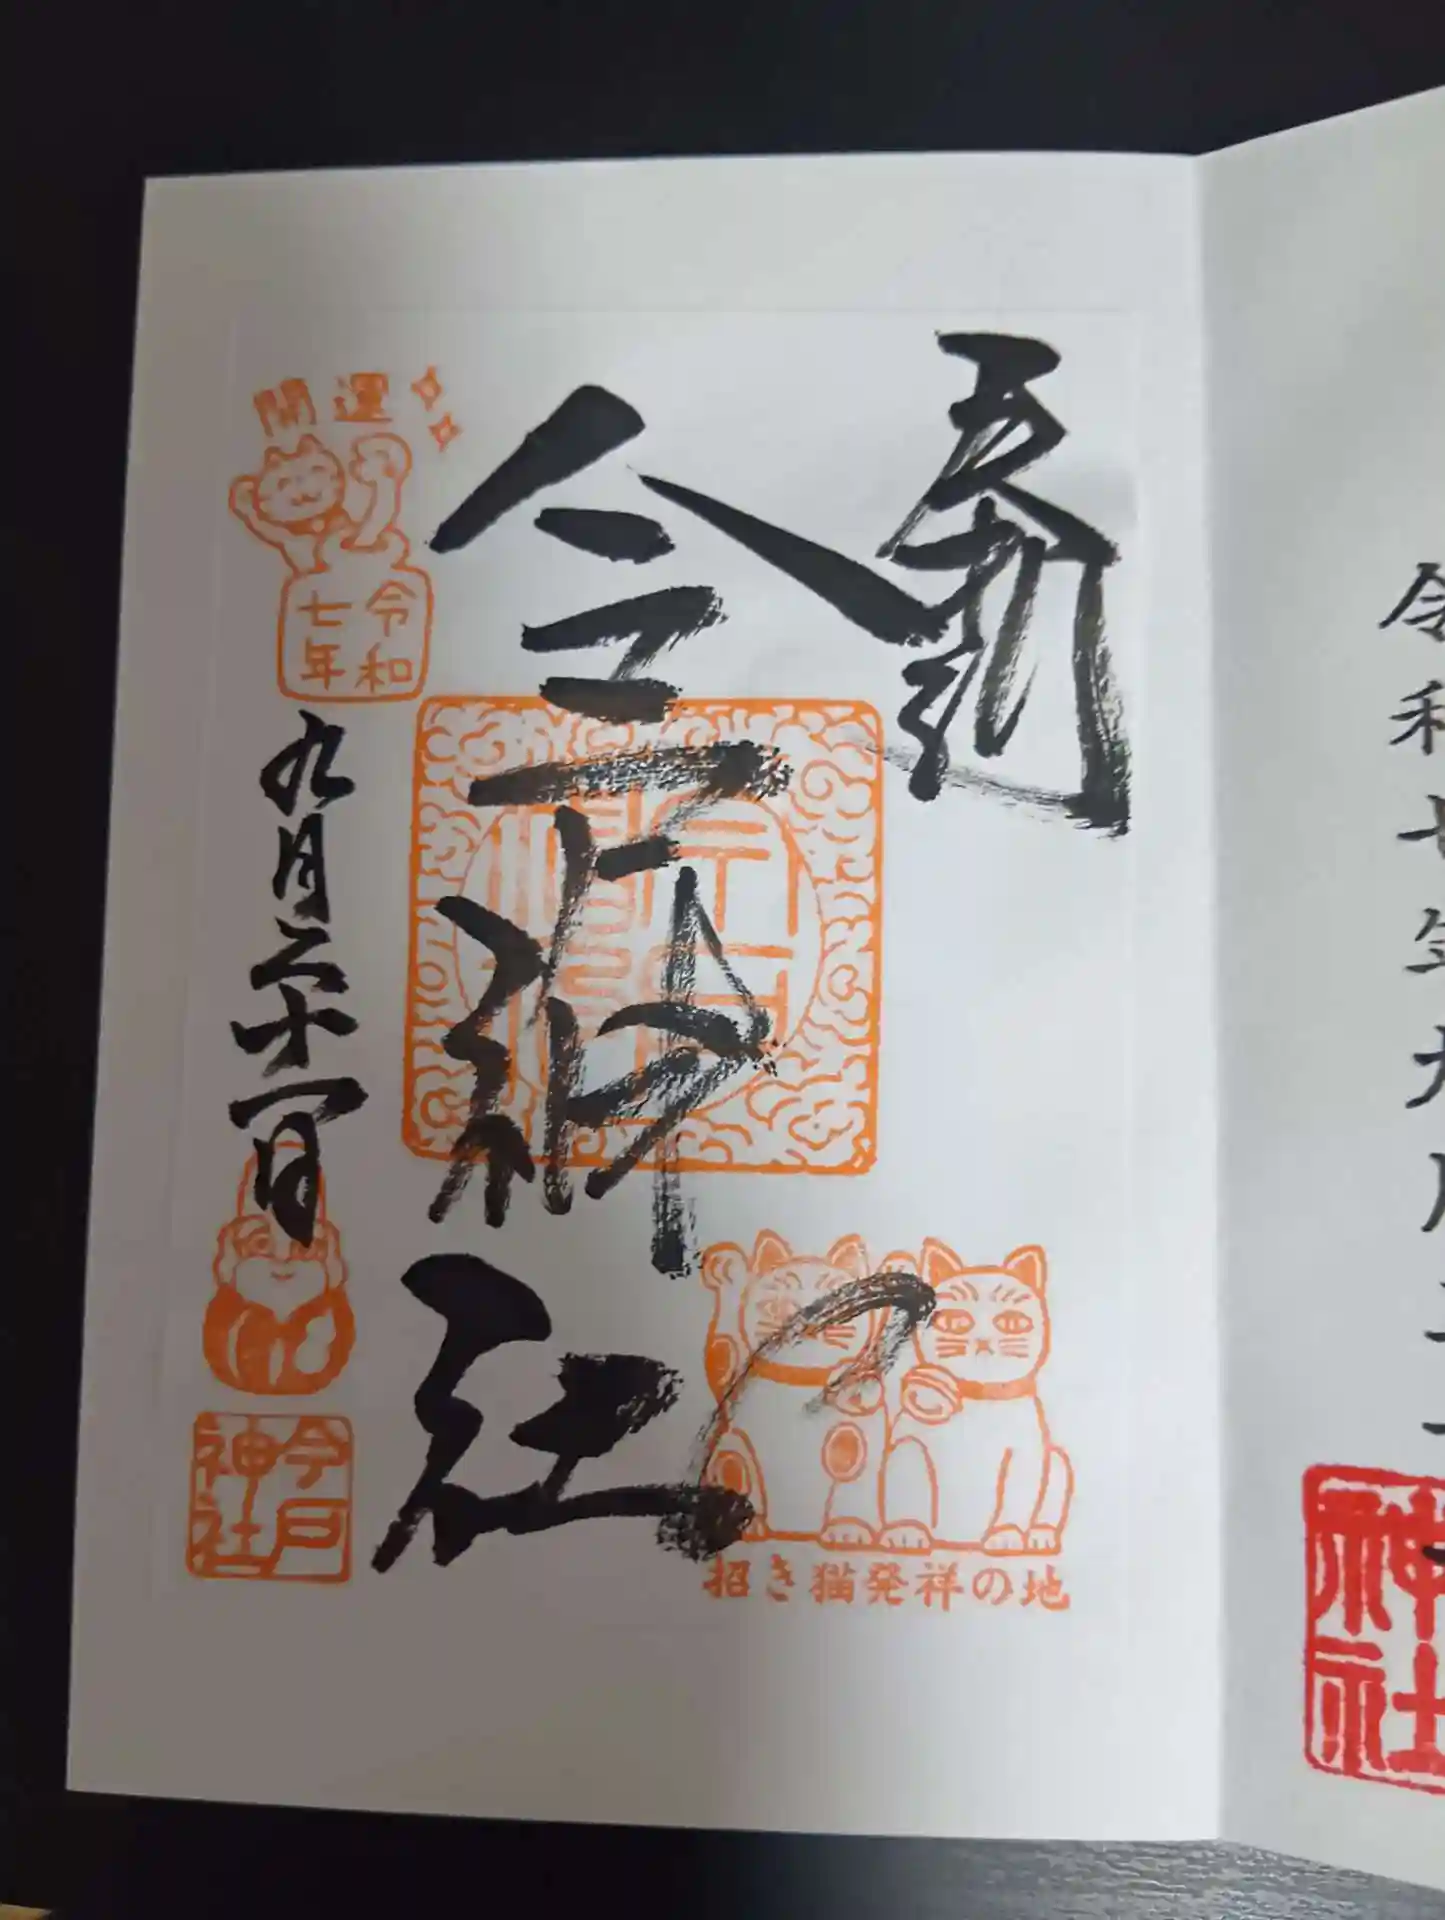 奉拝
今戸神社
開運
令和
七年
九月二十一日
今戸
神社
招き猫発祥の地
令和七年九月二十一
神社